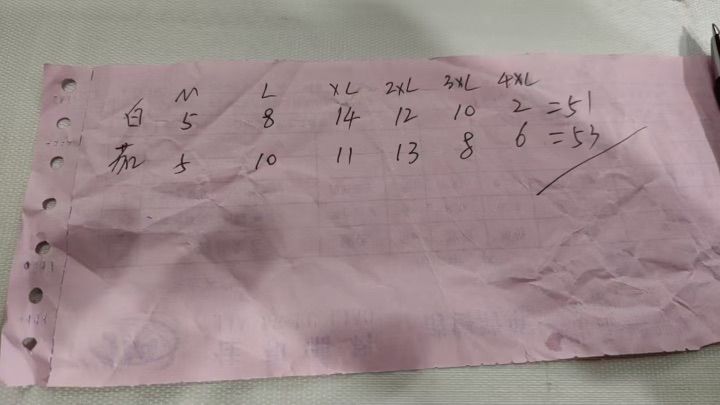 M L XL 2XL 3XL 4XL
白 5 8 14 12 10 2 =51
茄 5 10 11 13 8 6 =53